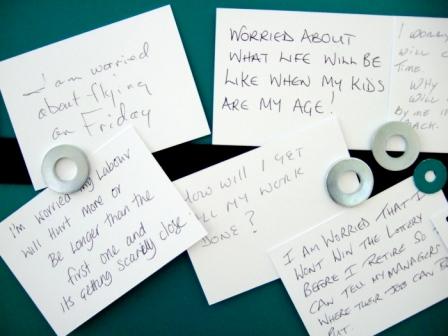 I am worried
about flying
on Friday
WORRIED ABOUT
WHAT LIFE WILL BE
LIKE WHEN MY KIDS
ARE MY AGE!
I worry
will
Time.
Why
will
By me
I'm worried my labour
will hurt more or
Be longer than the
first one and
its getting scarily close.
HOW WILL I GET
ALL MY WORK
DONE?
I AM WORRIED THAT I
WONT WIN THE LOTTERY
BEFORE I RETIRE SO I
CAN TELL MY MANAGERS
WHERE THEIR JOB CAN BE
PUT.